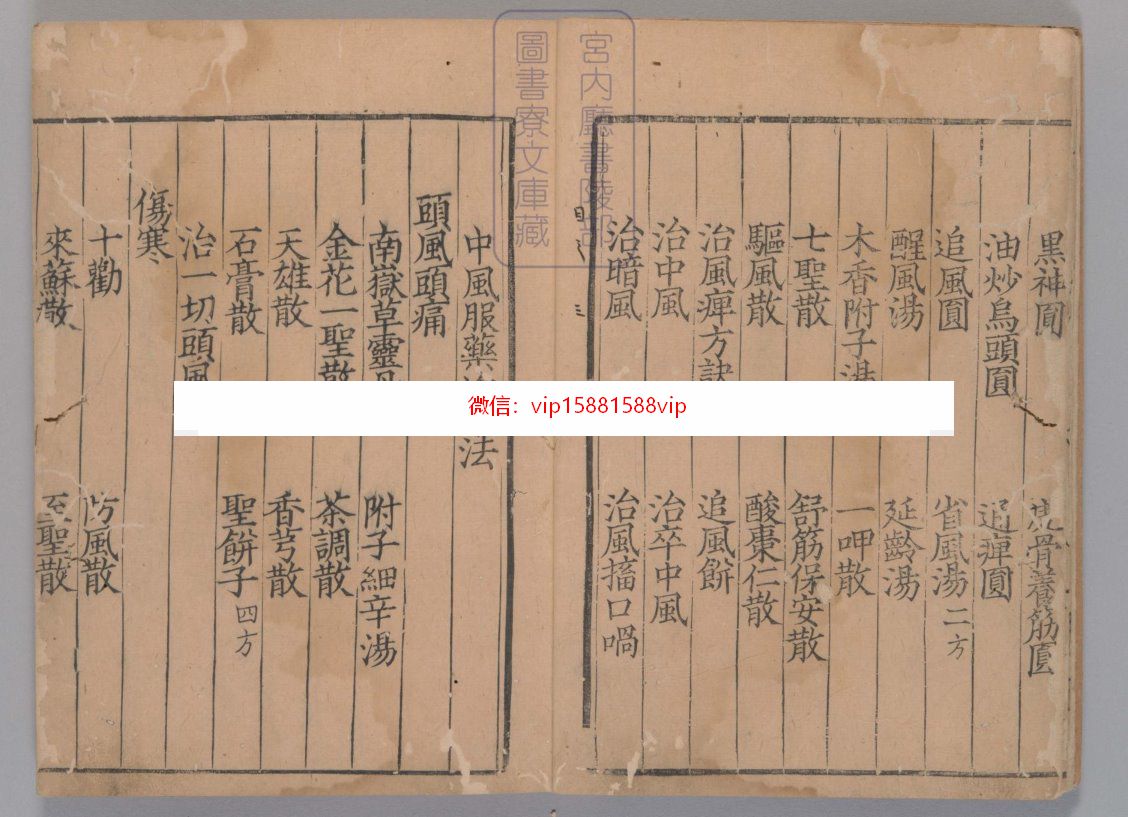 宮內廳書陵部
圖書寮文庫藏
黒神圎
油炒烏頭圓
追風圓
醒風湯
木香附子湯
七聖散
驅風散
治風痺方訣
治中風
治暗風
骨養筋圓
追痺圓
省風湯二方
延齡湯
一呷散
舒筋保安散
酸棗仁散
追風餅
治卒中風
治風搐口喎
三
微信：vip15881588vip
中風服藥
法
頭風頭痛
南嶽草靈丹
金花一聖散
天雄散
石膏散
治一切頭風
傷寒
十勸
來蘇散
附子細辛湯
茶調散
香芎散
聖餅子四方
防風散
至聖散